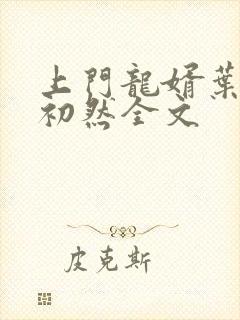 上門龍婿葉
初然全文
皮克斯